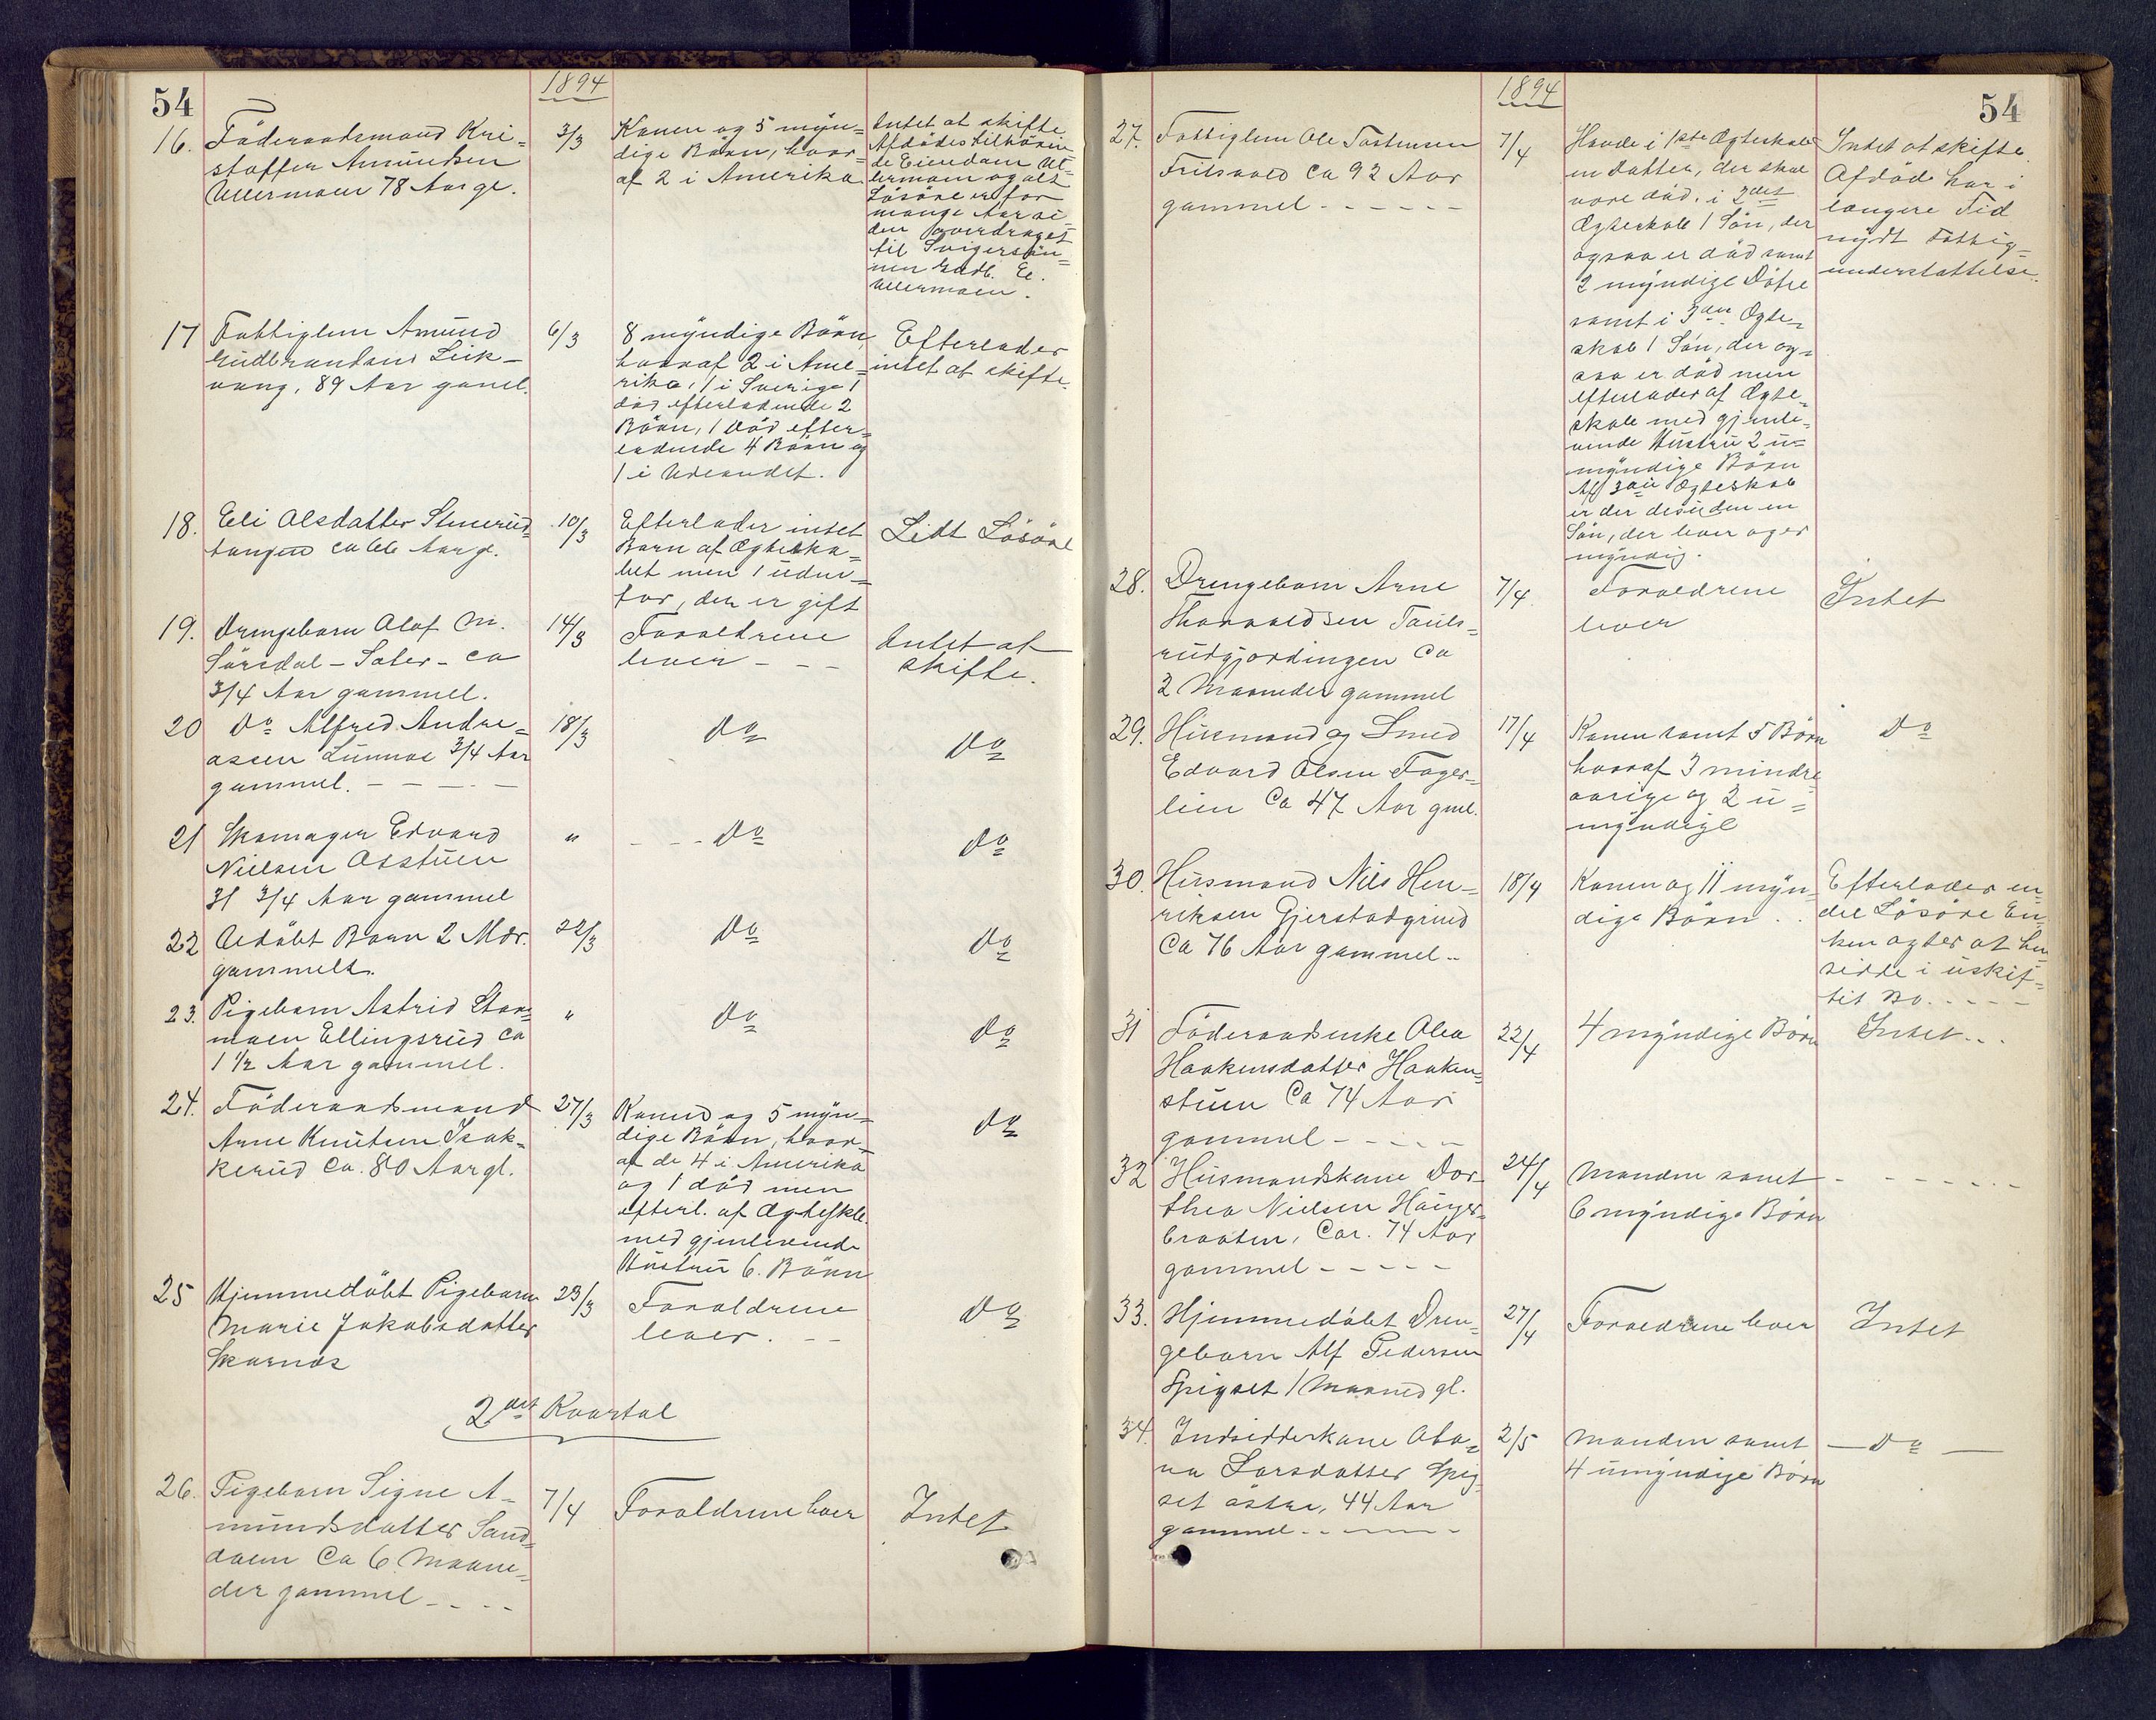 54
1894
16. Föderaadsmand Kri-
stoffer Amundsen
Ullermoen 78 Aar gl.
3/3
Konen og 5 myn-
dige Börn, hvor-
af 2 i Amerika
Intet at skifte
Afdödes tilhörin-
de Eiendom Ul-
lermoen og alt
Lösöre er for
mange Aar si-
den overdraget
til Svigersön-
nen Gudb. El.
Ullermoen.
17 Fattiglem Amund
Gudbrandsens Leik-
vang, 89 Aar gamel.
6/3
8 myndige Börn,
hvoraf 2 i Ame-
rika, 1 i Sverige 1
död efterladende 2
Börn, 1 död efter-
ladende 4 Börn og
1 i Udlandet.
Efterlader
intet at skifte.
18. Eli Olsdatter Stuerud-
tangen ca 66 Aar gl.
10/3
Efterlader intet
Barn af Ægteska-
bet men 1 uden-
for, der er gift
Lidt Lösöre
19. Drengebarn Olaf M.
Sörsdal - Soler - ca
3/4 Aar gammel.
14/3
Forældrene
lever - - -
Intet at
skifte.
20 Do Alfred Andre-
asen Lunnae 3/4 Aar
gammel. - - - -
18/3
Do
Do
21 Skomager Edvard
Nielsen Asstuen
31 3/4 Aar gammel
"
- - - Do
Do
22 Udöbt Barn 2 Mdr.
gammelt.
22/3
Do
Do
23. Pigebarn Astrid Stor-
moen Ellingsrud Ca
1 1/2 Aar gammel.
"
Do
Do
24. Föderaadsmand
Arne Knutsen Isak-
kerud Ca. 80 Aar gl.
27/3
Konen og 5 myn-
dige Börn, hvor-
af de 4 i Amerika
og 1 död men
efterl. af Ægteskb.
med gjenlevende
Hustru 6. Börn
Do
25 Hjemmedöbt Pigebarn
Marie Jakobsdatter
Skarnos
23/3
Forældrene
lever. - -
Do
2det Kvartal
26. Pigebarn Signe A-
mundsdatter Sand-
dalen Ca 6 Maane-
der gammel - - - -
7/4
Forældrene lever
Intet
1894
54
27. Fattiglem Ole Tostensen
Frilsvold Ca 92 Aar
gammel - - - - - -
7/4
Havde i 1ste Ægteskab
en Datter, der skal
være död. i 2det
Ægteskab 1 Sön, der
ogsaa er död samt
2 myndige Dötre
samt i 3die Ægte-
skab 1 Sön, der og-
saa er död men
efterlader af Ægte-
skab med gjenle-
vende Hustru 2 u-
myndige Börn
Af 3die Ægteskab
er der desuden en
Sön, der lever og er
myndig.
Intet at skifte.
Afdöde har i
længere Tid
nydt Fattig-
understöttelse.
28. Drengebarn Arne
Thorvaldsen Tauls-
rudgjordingen Ca
2 Maaneder gammel
7/4
Forældrene
lever
Intet
29. Husmand og Smed
Edvard Olsen Fager-
lien Ca 47 Aar gml.
17/4
Konen samt 5 Börn
hvoraf 3 mindre
aarige og 2 u-
myndige
Do
30. Husmand Nils Hen-
riksen Gjerstadgrind
Ca 76 Aar gammel -
18/4
Konen og 11 myn-
dige Börn . .
Efterlader en
del Lösöre En-
ken agter at hen
sidde i uskif-
tet Bo. - - - -
31 Föderaadsenke Olea
Haakensdatter Haaken-
stuen Ca 74 Aar
gammel - - - - -
22/4
4 myndige Börn
Intet...
32 Husmandskone Dor-
thea Nielsen Hauger-
braaten, Car. 74 Aar
gammel - - - - -
24/4
Manden samt
6 myndige Börn
- - - - - - -
33. Hjemmedöbt Dren-
gebarn Alf Pedersen
Spigset 1 Maaned gl.
27/4
Forældrene lever
Intet
34. Indsidderkone Obe-
na Larsdatter Spig-
set östre, 44 Aar
gammel - - - - -
2/5
Manden samt
4 umyndige Börn
- Do -